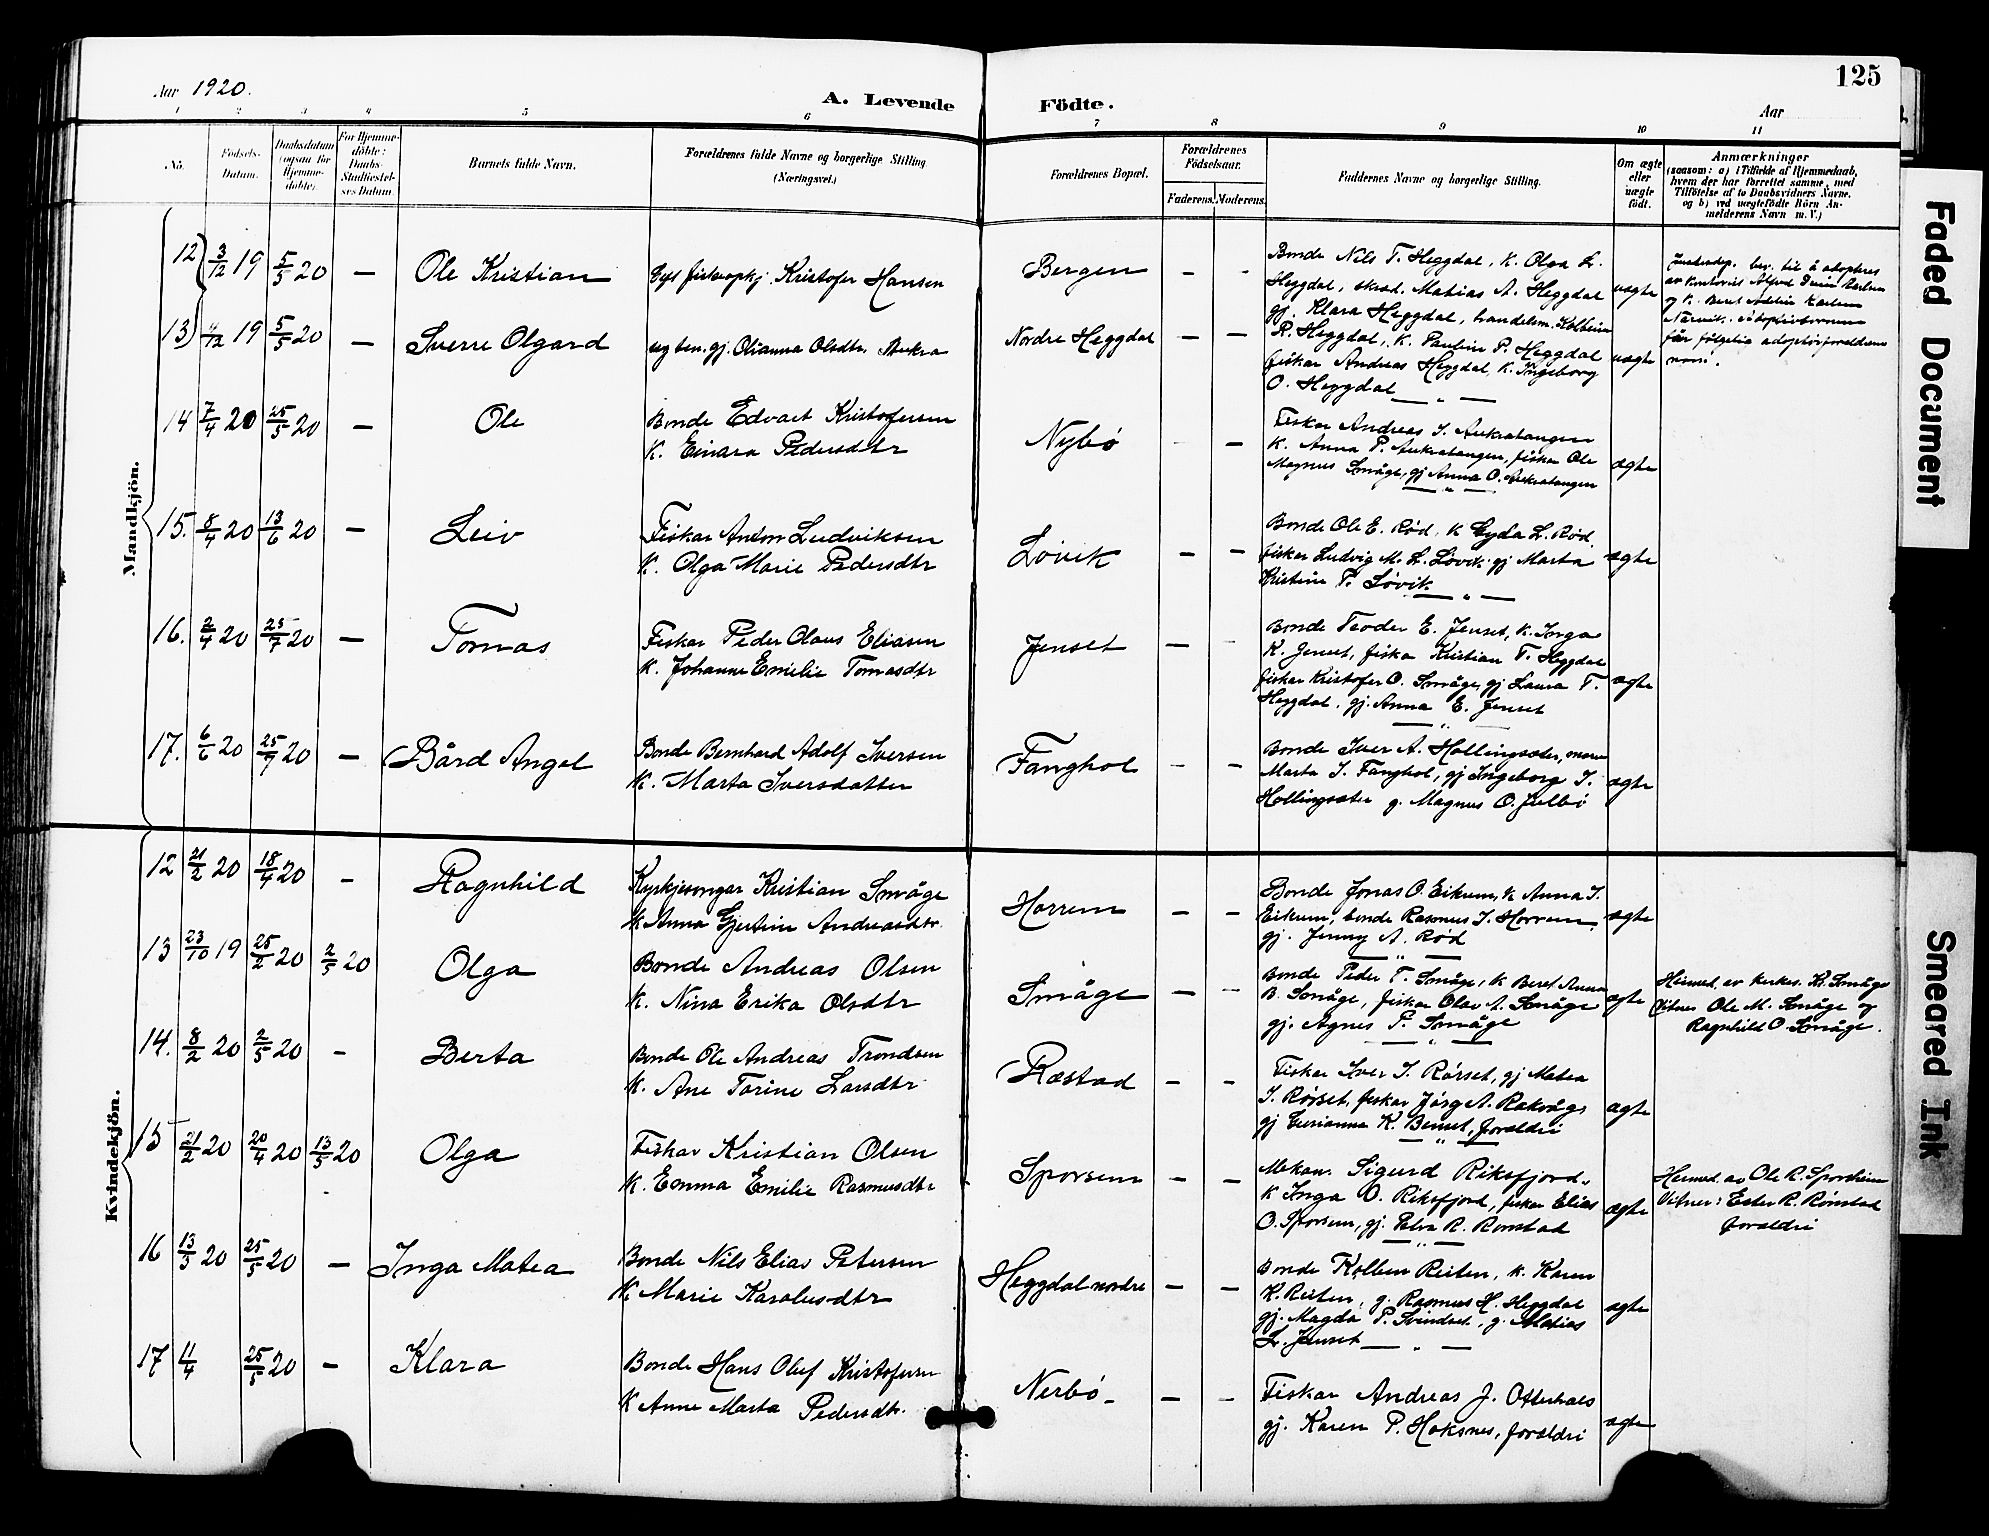 Aar 1920.
A. Levende Födte.
125
Aar
1 2 3 4 5 6 7 8 9 10 11
No.
Födsels-Datum.
Daabsdatum (ogsaa for Hjemmedöbte).
For Hjemmedöbte: Daabs-Stadfæstelses Datum.
Barnets fulde Navn.
Forældrenes fulde Navne og borgerlige Stilling (Næringsvei.)
Forældrenes Bopæl.
Forældrenes Födselsaar.
Faderens. Moderens.
Faddernes Navne og borgerlige Stilling.
Om ægte eller uægte født.
Anmærkninger
(saasom: a) i Tilfælde af Hjemmedaab,
hvem der har forrettet samme, med
Tilföielse af to Daabsvidners Navne.
og b) ved uægtefödte Börn An-
melderens Navn m. V.)
Mandkjön.
12 3/12 19 5/5 20 — Ole Kristian
Kristofer Hansen
Bergen - -
Bonde Nils T. Heggdal, K. Olga L.
Heggdal, Matias A. Heggdal
gj. Klara Heggdal, handelsm. Kolbein
uægte
13 19 5/5 20 — Sverre Olgard
ugten. gj. Olianna Olsdtr. Aukra
Nordre Heggdal — —
R. Heggdal, K. Paulin P. Heggdal
fiskar Andreas Heggdal, K. Ingeborg
O. Heggdal
uægte
til å adopteres
Alfred Karlsen
og K. Beret Karlsen
Narvik.
får følgelig adoptivforældrenes
navn.
14 7/4 20 25/5 20 — Ole
Bonde Edvart Kristofersen
K. Einara Pedersdtr
Nybö —
Fiskar Andreas J. Aukratangen
K. Anna P. Aukratangen, fiskar Ole
Magnus Småge, gj Anna O. Aukratangen
ægte
15. 8/4 20 13/6 20 — Leiv
Fiskar Anton Ludviksen
K. Olga Marie Pedersdtr
Løvik - —
Bonde Ole E. Rød, K Gyda L. Rød
fiskar Ludvig M. L. Løvik gj Marta
Kristine P. Løvik
ægte
16. 2/4 20 25/7 20 — Tomas
Fiskar Peder Olaus Eliasen
K. Johanne Emilie Tomasdtr
Jenset — -
Bonde Teodor E. Jenset, K. Inga
K. Jenset, fiskar Kristian T. Heggdal
fiskar Kristofer O. Småge, gj Laura T.
Heggdal, gj. Anna E. Jenset
ægte
17. 6/6 20 25/7 20 — Bård Angel
Bonde Bernhard Adolf Iversen
K. Marta Iversdatter
Fanghol - —
Bonde Iver A. Hollingsæter,
Marta I. Fanghol, gj Ingeborg I.
Hollingsæter g. Magnus O. Julbö
ægte
Kvindekjön.
12 21/2 20 18/4 20 - Ragnhild
Kyrkjesongar Kristian Småge
K Anna Gjertine Andreasdtr.
Horrem — —
Bonde Jonas O. Eikrem, K Anna J.
Eikrem, bonde Rasmus J. Horrem,
gj. Jenny A. Rød
ægte
13 23/10 19 25/2 20 2/5 20 Olga
Bonde Andreas Olsen
K. Nina Erika Olsdtr
Småge — —
Bonde Peder T. Småge, K Beret Anna
B. Småge, fiskar Olav A. Småge
gj. Agnes P. Småge
ægte
Heimed. av kirkes. K. Småge
Vitner Ole M. Småge og
Ragnhild O. Småge.
14. 8/2 20 2/5 20 - Berta
Bonde Ole Andreas Trondsen
K. Ane Torine Larsdtr
Røstad — -
Fiskar Iver J. Rørset, gj Matea
J. Rørset, fiskar A. Rakvåg
gj K. Beinset, foreldri
ægte
15 21/2 20 20/4 20 13/5 20 Olga
Fiskar Kristian Olsen
K. Emma Emilie Rasmusdtr
Sporsem — —
Mekan. Sigurd Riksfjord.
K Inga O. Riksfjord, fiskar Elias
O. Sporsem, gj. Petra R. Romstad
ægte
Heimed. av Ole R. Sporsheim
Vitner: Ester R. Romstad
foreldri
16 13/3 20 25/5 20 — Inga Matea
Bonde Nils Elias Petersen
K. Marie Karolusdtr
Heggdal nordre — —
Bonde Kolben Reiten, K. Karen
K. Reiten, g. Rasmus H. Heggdal
gj. Magda P. g. Matias
L. Jenset
ægte
17 11/4 25/5 20 — Klara
Bonde Hans Oluf Kristofersen
K Anne Marta Pedersdtr.
Nerbö - — —
Fiskar Andreas J. Otterhals
gj. Karen P. Hoksnes, foreldri
ægte
Faded Document
Smeared Ink